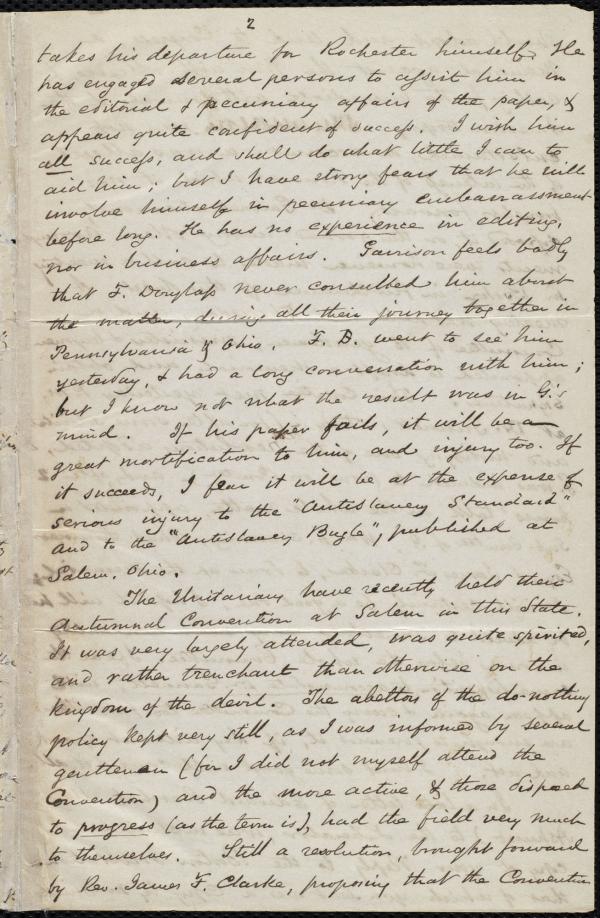 2
takes his departure for Rochester himself. He
has engaged several persons to assist him in
the editorial & pecuniary affairs of the paper, &
appears quite confident of success. I wish him
all success, and shall do what little I can to
aid him; but I have strong fears that he will
involve himself in pecuniary embarrassment
before long. He has no experience in editing,
nor in business affairs. Garrison feels badly
that F. Douglass never consulted him about
the matter, during all their journey together in
Pennsylvania & Ohio. F. D. went to see him
yesterday, & had a long conversation with him;
but I know not what the result was in G.'s
mind. If his paper fails, it will be a
great mortification to him, and injury too. If
it succeeds, I fear it will be at the expense of
serious injury to the "Antislavery Standard"
and to the "Antislavery Bugle", published at
Salem, Ohio.
The Unitarians have recently held their
Autumnal Convention at Salem in this State.
It was very largely attended, was quite spirited,
and rather trenchant than otherwise on the
kingdom of the devil. The abettors of the do-nothing
policy kept very still, as I was informed by several
gentlemen (for I did not myself attend the
Convention) and the more active, & those disposed
to progress (as the term is), had the field very much
to themselves. Still a resolution, brought forward
by Rev. James F. Clarke, proposing that the Convention